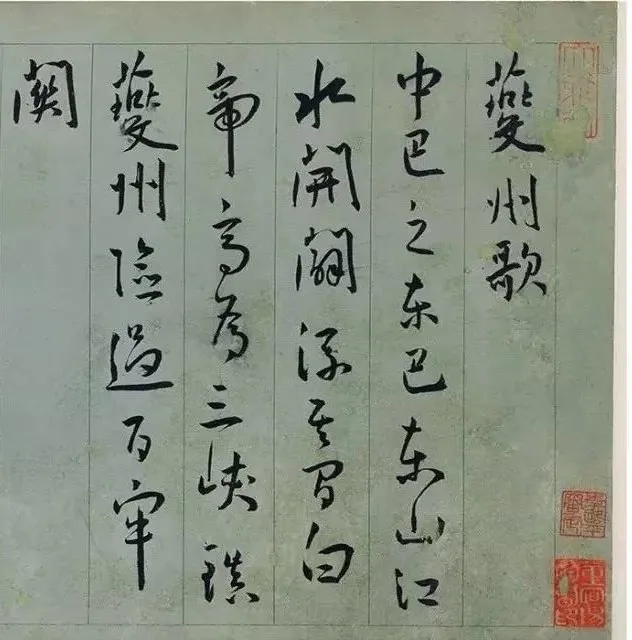 夔州歌
中巴之东巴东山江
水開闢流其間白
帝高為三峽鎮
夔州險過百牢
關